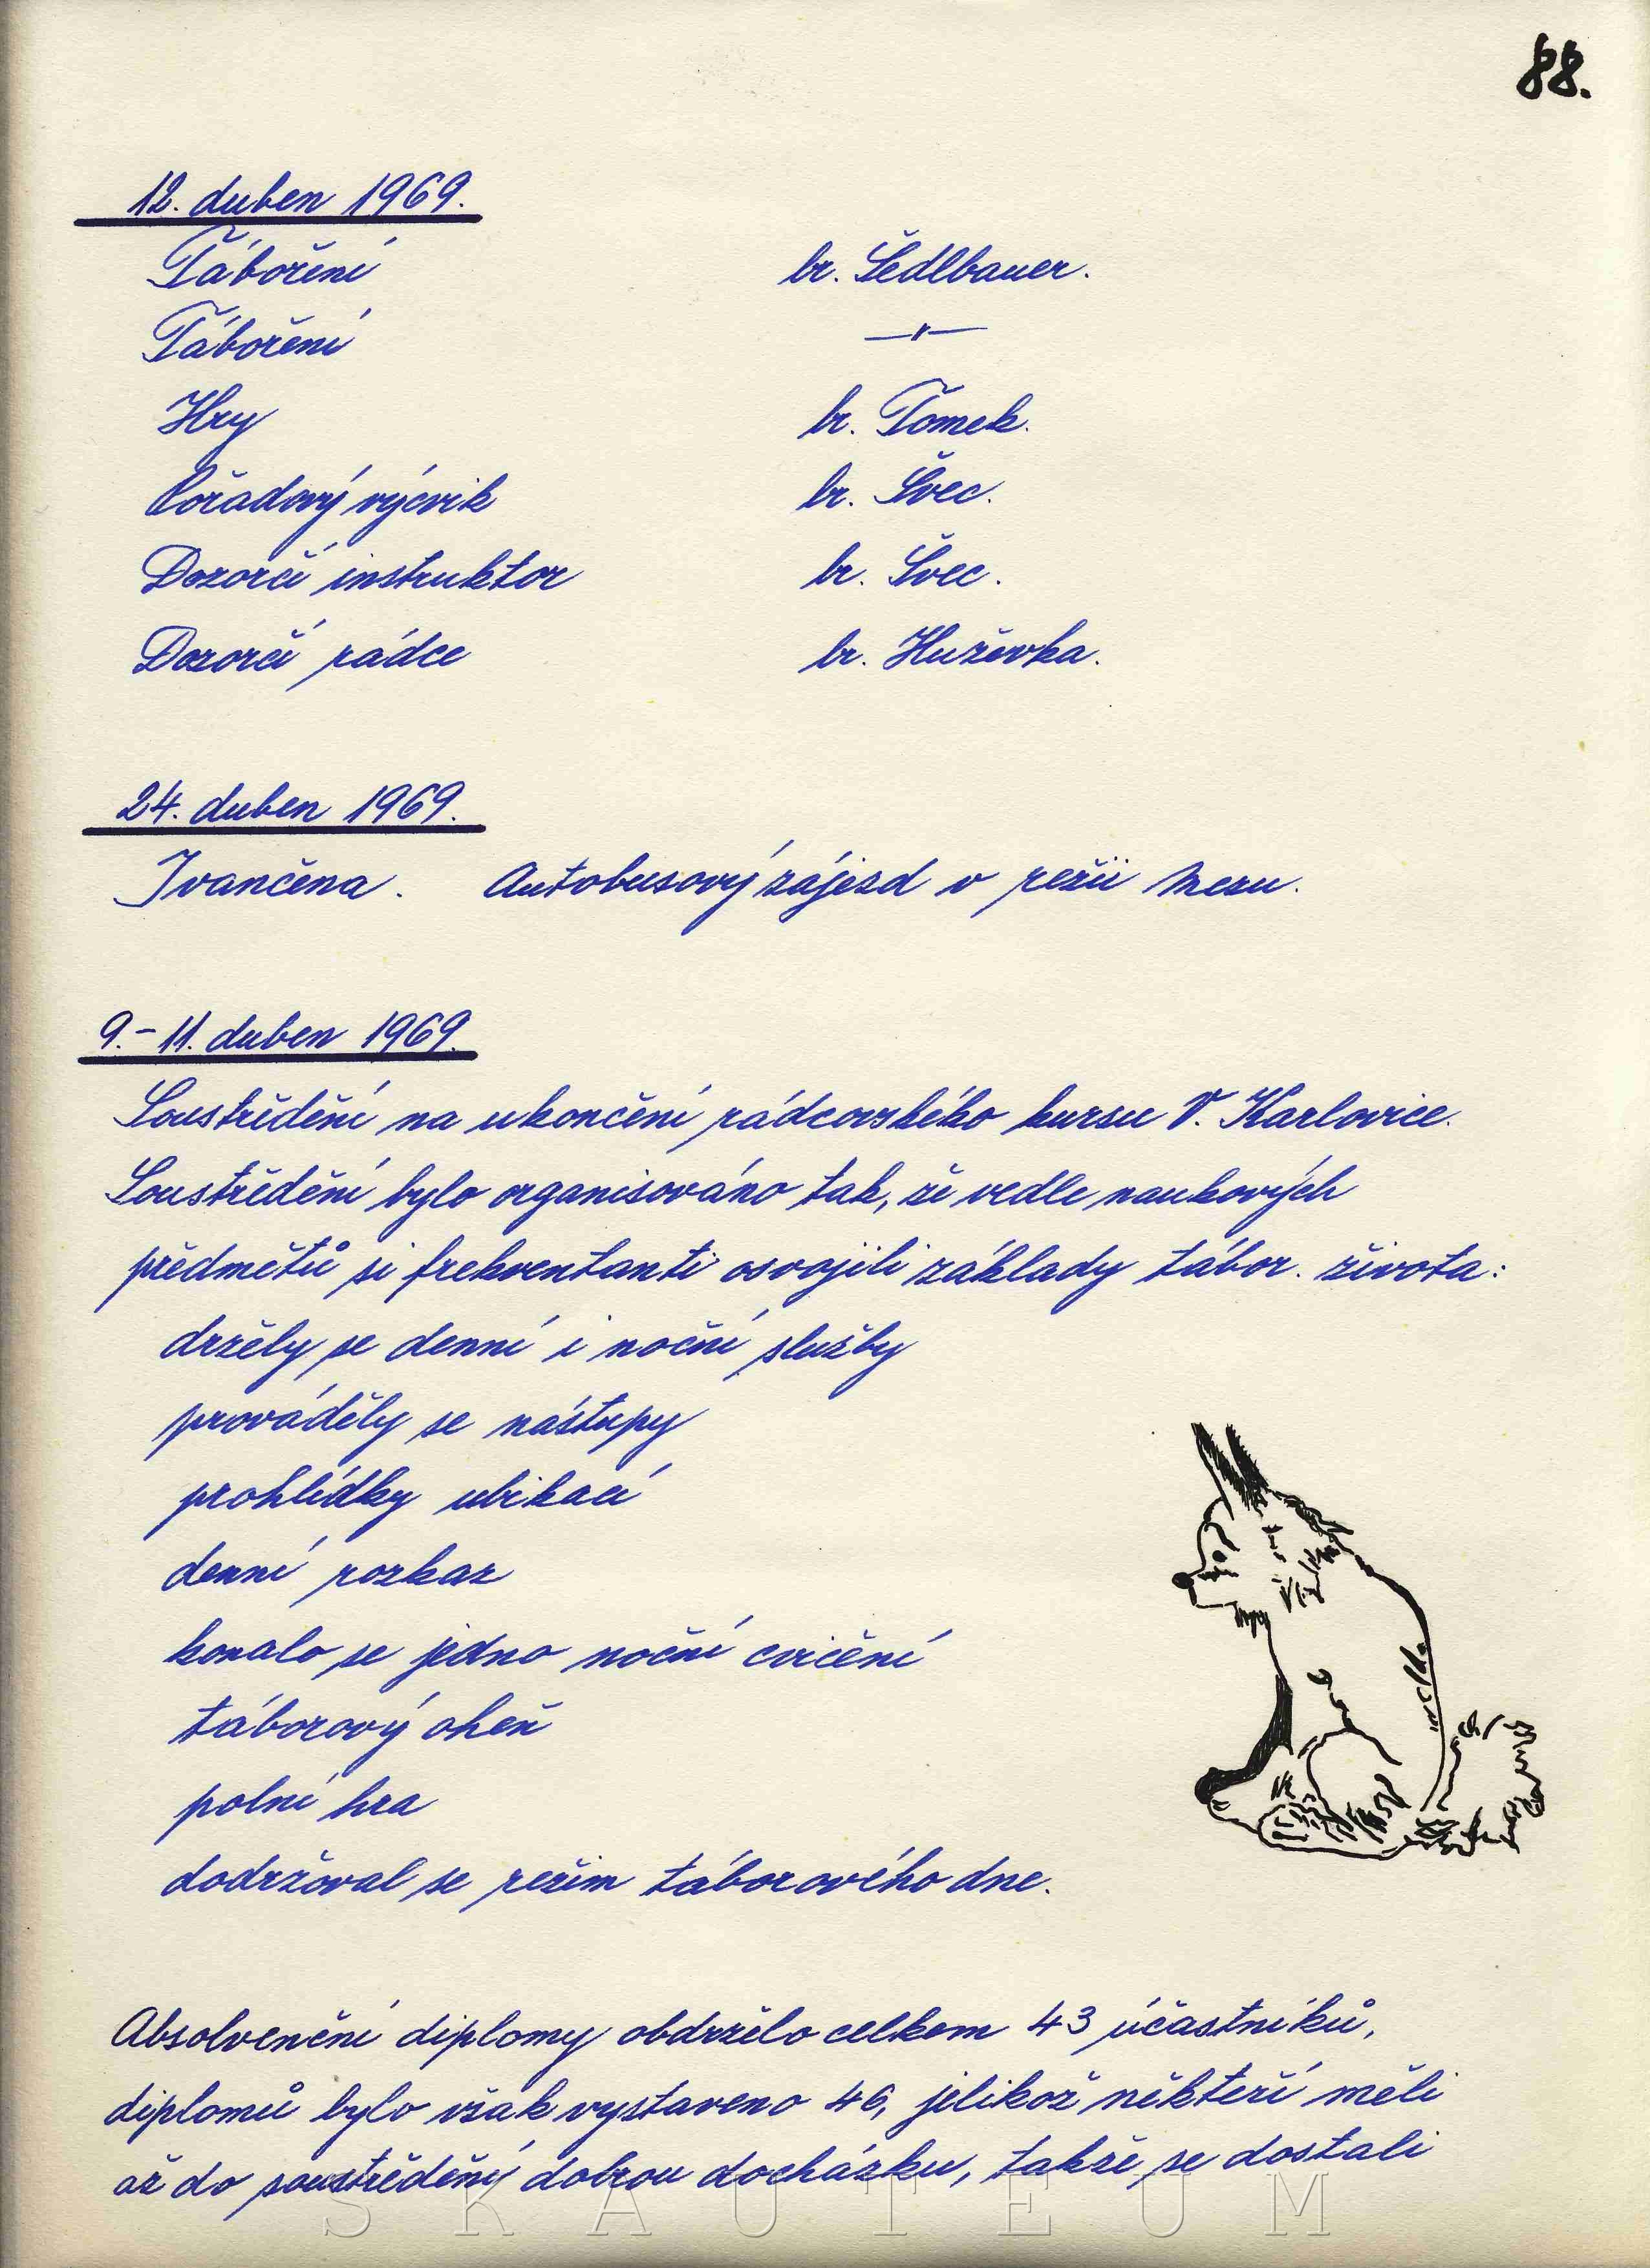 88.
12. duben 1969.
Táboření br. Šedlbauer.
Táboření —〃—
Hry br. Tomek.
Pořadový výcvik br. Švec.
Dozorčí instruktor br. Švec.
Dozorčí rádce br. Huževka.
24. duben 1969.
Ivančena. Autobusový zájezd v režii Mezu.
9.-11. duben 1969.
Soustředění na ukončení rádcovského kursu V. Karlovice.
Soustředění bylo organisováno tak, že vedle naukových
předmětů si frekventanti osvojili základy tábor. života:
držely se denní i noční služby
prováděly se nástupy
prohlídky ubikací
denní rozkaz
konalo se jedno noční cvičení
táborový oheň
polní hra
dodržoval se režim táborového dne.
Absolvenční diplomy obdrželo celkem 43 účastníků,
diplomů bylo však vystaveno 46, jelikož někteří měli
až do soustředění dobrou docházku, takže se dostali
SKAUTEUM